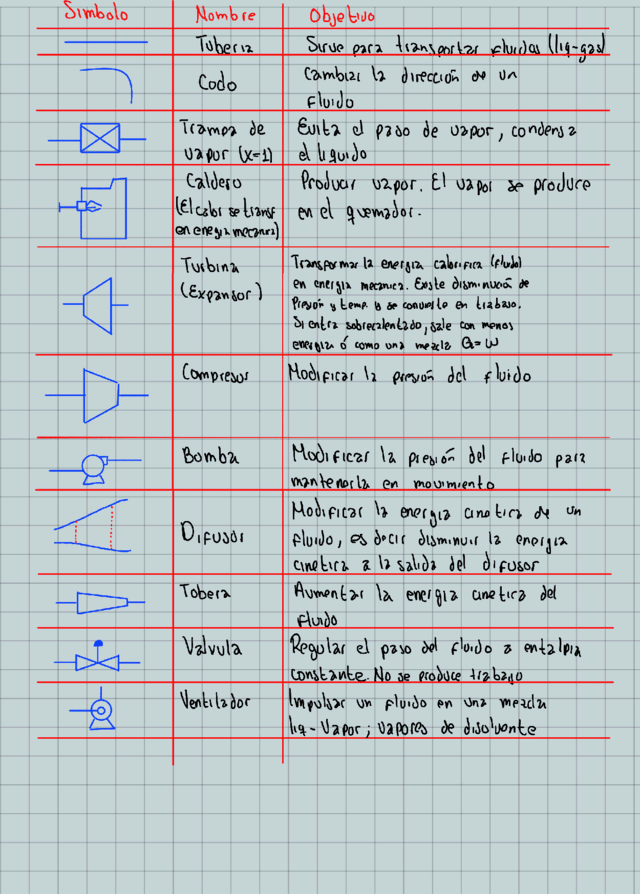 Simbolo Nombre Objetivo
Tuberia Sirve para transportar fluidos (liq-gas)
Codo Cambiar la dirección de un
fluido
Trampa de Evita el paso de vapor, condensa
vapor (x=1) el liquido
Caldero Producir vapor. El vapor se produce
(El calor se transf en el quemador.
en energia mecanica)
Turbina Transformar la energia calorifica (fluido)
(Expansor) en energia mecanica. Existe disminución de
Presión y temp. y se convierte en trabajo.
Si entra sobrecalentado, sale con menos
energia ó como una mezcla Q=W
Compresor Modificar la presión del fluido
Bomba Modificar la presión del fluido para
mantenerla en movimiento
Modificar la energia cinetica de un
Difusor fluido, es decir disminuir la energia
cinetica a la salida del difusor
Tobera Aumentar la energia cinetica del
fluido
Valvula Regular el paso del fluido a entalpia
constante. No se produce trabajo
Ventilador Impulsar un fluido en una mezcla
liq-Vapor; vapores de disolvente